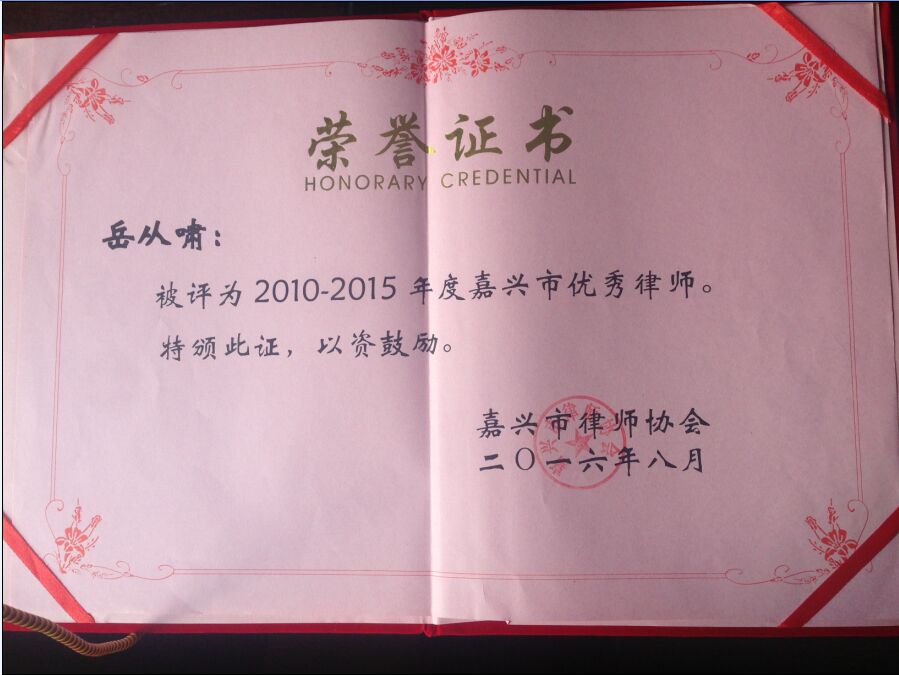 荣誉证书
HONORARY CREDENTIAL
岳从啸：
被评为 2010-2015 年度嘉兴市优秀律师。
特颁此证，以资鼓励。
嘉兴市律师协会
二〇一六年八月